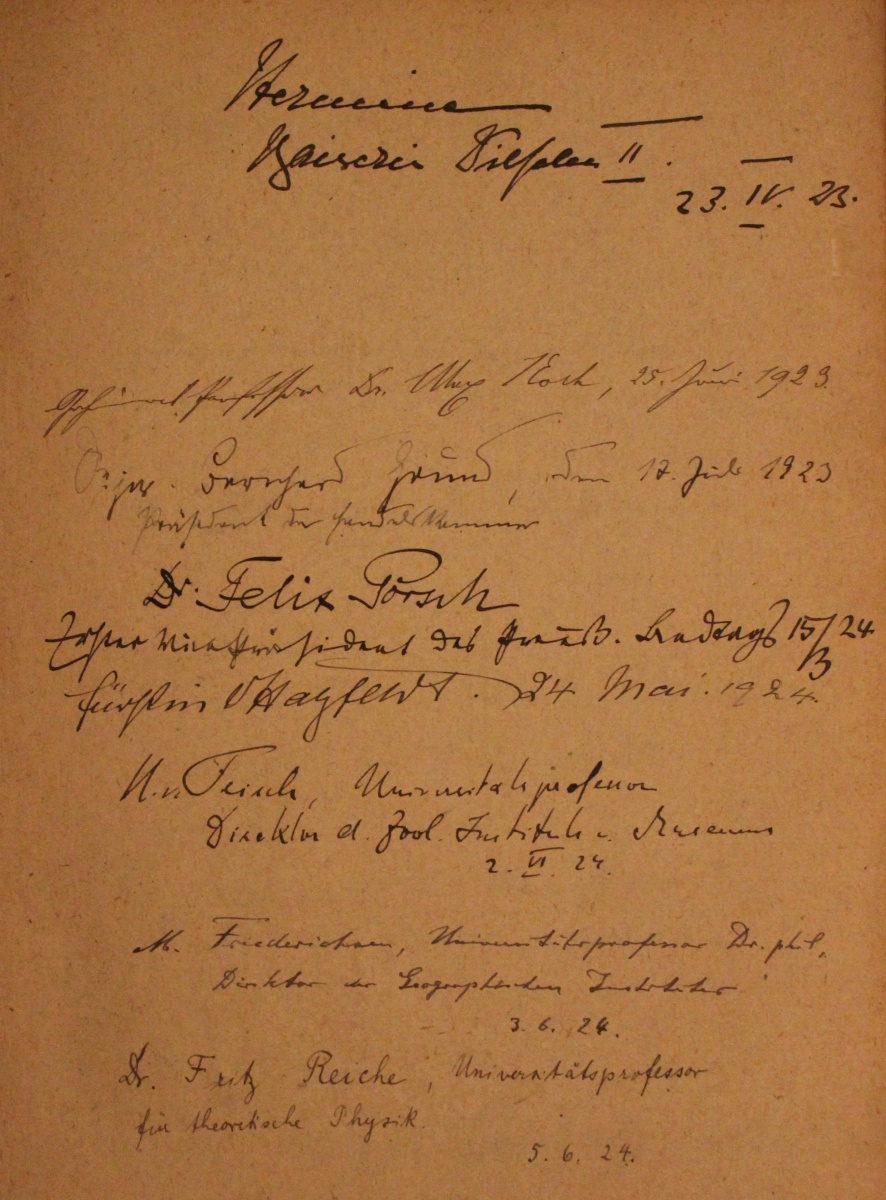 Hermine
Kaiserin Wilhelm II.
23. IV. 23.
Professor Dr. Max Koch, 25. Juni 1923.
Dr jur. Bernhard Grund, den 17. Juli 1923
Präsident der Handelskammer
Dr. Felix Porsch
Erster Vizepräsident des Preuß. Landtags 15/3 24
Fürstin v Hatzfeldt. 24 Mai. 1924.
K. v. Frisch, Universitätsprofessor
Direktor d. Zool. Instituts u. Museums
2. VI. 24.
M. Friederichsen, Universitätsprofessor Dr. phil,
Direktor des Geographischen Institutes
3. 6. 24.
Dr. Fritz Reiche, Universitätsprofessor
für theoretische Physik.
5. 6. 24.